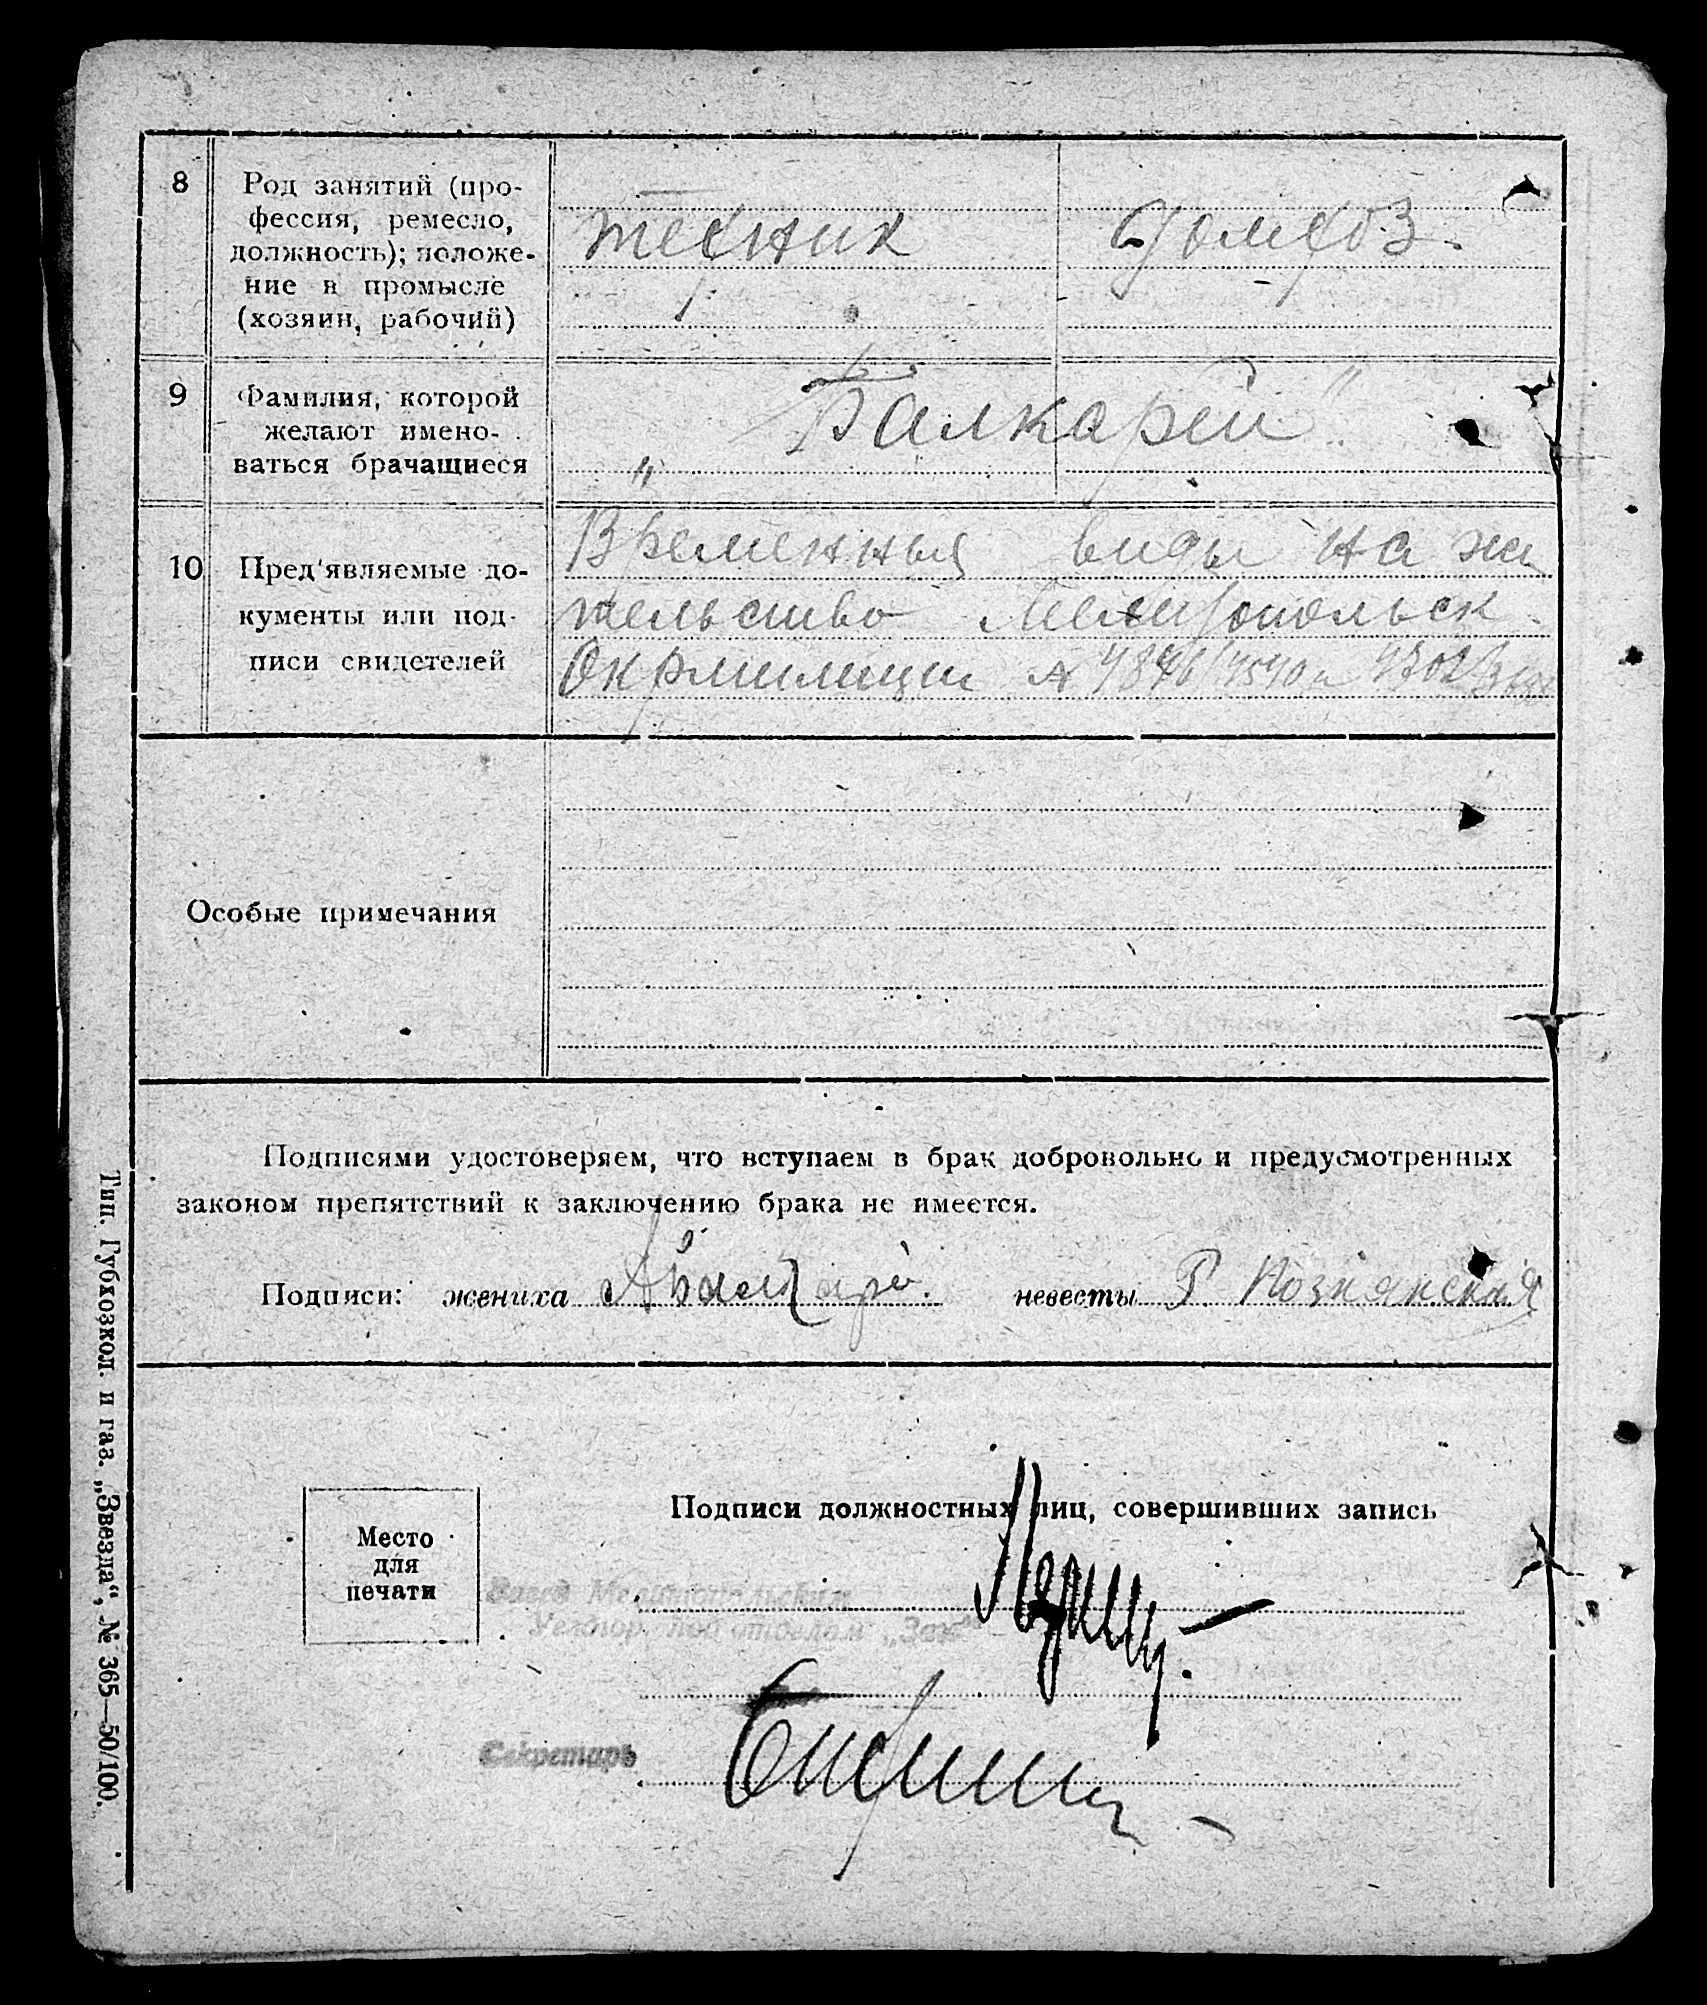 8
Род занятий (про-
фессия, ремесло,
должность); положе-
ние в промысле
(хозяин, рабочий)
техник
домхоз.
9
Фамилия, которой
желают имено-
ваться брачащиеся
"
"
10
Пред'являемые до-
кументы или под-
писи свидетелей
Временныя виды на жи
тельство Мелитопольск
Окрмилиции
Особые примечания
Подписями удостоверяем, что вступаем в брак добровольно и предусмотренных
законом препятствий к заключению брака не имеется.
Подписи: жениха
невесты Р Познянская
Место
для
печати
Подписи должностных лиц, совершивших запись
Завед Мелитопольским
отделом „Загс"
Секретарь
Тип. Губкозкол. и газ. „Звезда“, № 365—50/100.